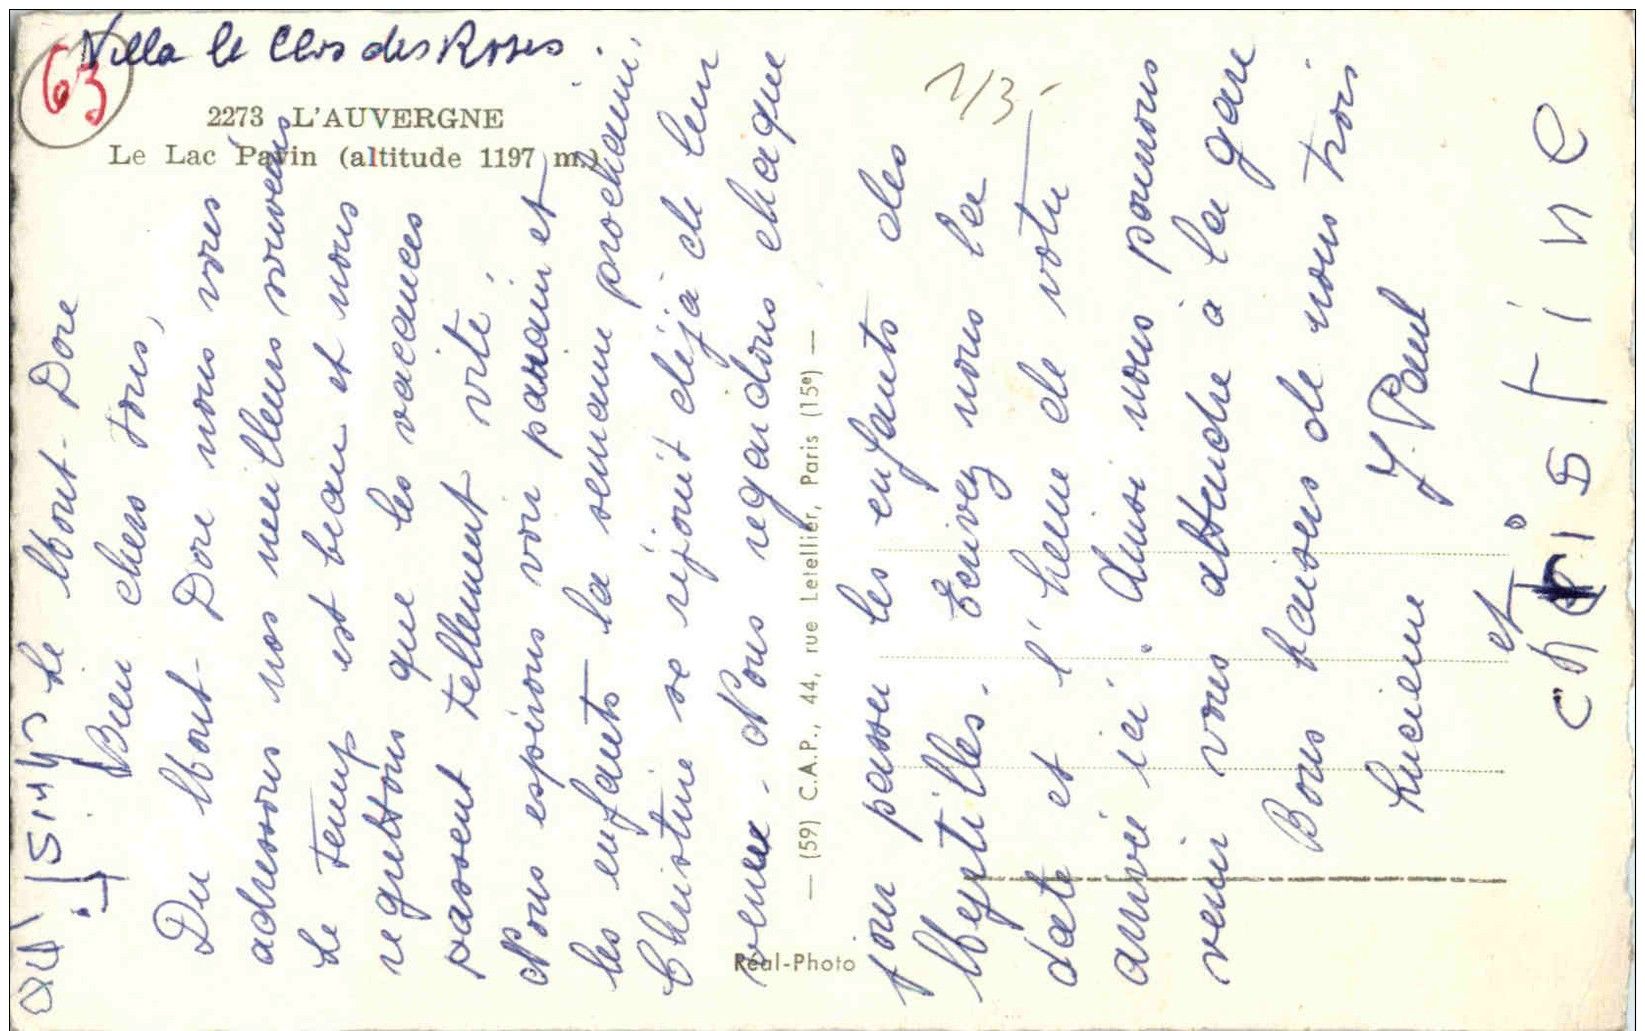 Villa le Clos des Roses.
63
2273 L'AUVERGNE
Le Lac Pavin (altitude 1197 m.)
1/3-
Le Mont-Dore
Bien chers tous,
Du Mont-Dore nous vous
adressons nos meilleurs souvenirs
Le temps est beau et nous
regrettons que les vacances
passent tellement vite.
Nous espérons voir parrain et
les enfants la semaine prochaine.
Christine se réjouit déjà de leur
venue. Nous regardons chaque
jour passer les enfants des
Myrtilles. Ecrivez nous la
date et l'heure de votre
arrivée ici. Ainsi nous pourrons
venir vous attendre à la gare
Bons baisers de nous trois
Lucienne J. Paul
et
christine
— (59) C.A.P., 44, rue Letellier, Paris (15e) —
Réal-Photo